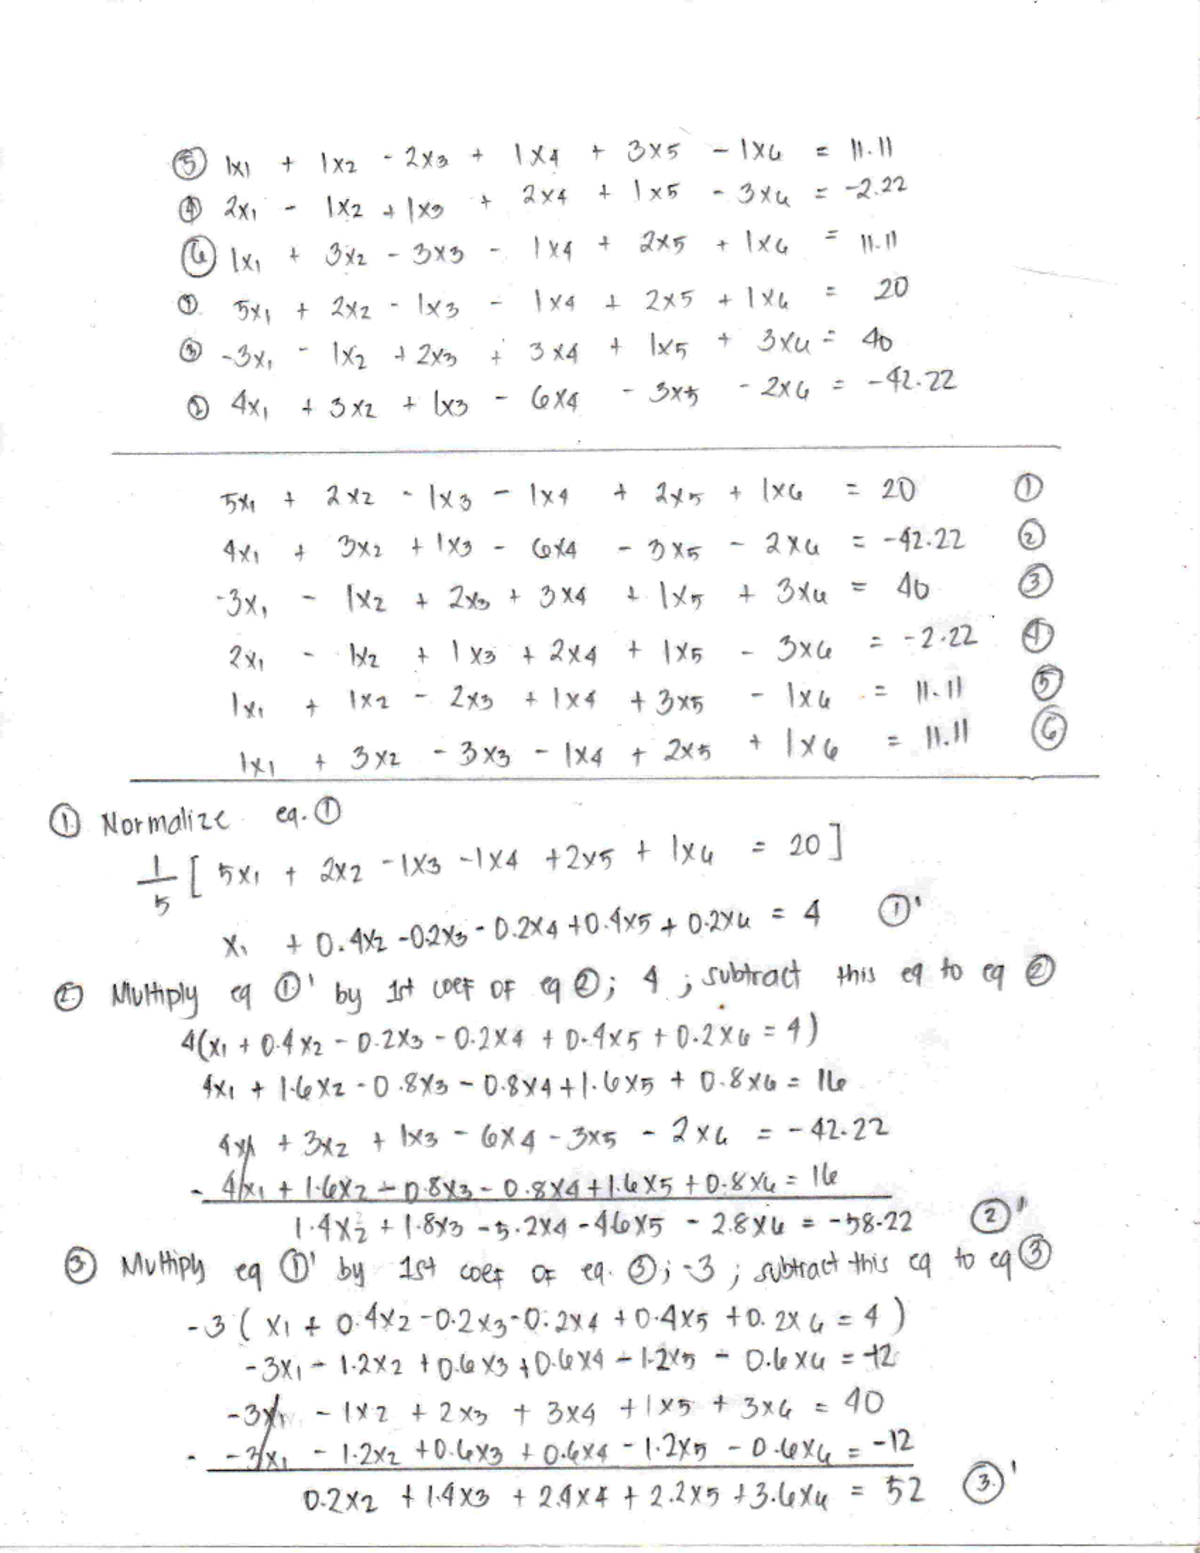 ⑤ 1x1 + 1x2 - 2x3 + 1x4 + 3x5 - 1x6 = 11.11
④ 2x1 - 1x2 + 1x3 + 2x4 + 1x5 - 3x6 = -2.22
⑥ 1x1 + 3x2 - 3x3 - 1x4 + 2x5 + 1x6 = 11.11
① 5x1 + 2x2 - 1x3 - 1x4 + 2x5 + 1x6 = 20
③ -3x1 - 1x2 + 2x3 + 3x4 + 1x5 + 3x6 = 40
② 4x1 + 3x2 + 1x3 - 6x4 - 3x5 - 2x6 = -42.22
5x1 + 2x2 - 1x3 - 1x4 + 2x5 + 1x6 = 20 ①
4x1 + 3x2 + 1x3 - 6x4 - 3x5 - 2x6 = -42.22 ②
-3x1 - 1x2 + 2x3 + 3x4 + 1x5 + 3x6 = 40 ③
2x1 - 1x2 + 1x3 + 2x4 + 1x5 - 3x6 = -2.22 ④
1x1 + 1x2 - 2x3 + 1x4 + 3x5 - 1x6 = 11.11 ⑤
1x1 + 3x2 - 3x3 - 1x4 + 2x5 + 1x6 = 11.11 ⑥
① Normalize eq. ①
1/5 [ 5x1 + 2x2 - 1x3 - 1x4 + 2x5 + 1x6 = 20 ]
x1 + 0.4x2 - 0.2x3 - 0.2x4 + 0.4x5 + 0.2x6 = 4 ①'
② Multiply eq ①' by 1st coef of eq ②; 4 ; subtract this eq to eq ②
4(x1 + 0.4x2 - 0.2x3 - 0.2x4 + 0.4x5 + 0.2x6 = 4)
4x1 + 1.6x2 - 0.8x3 - 0.8x4 + 1.6x5 + 0.8x6 = 16
4x1 + 3x2 + 1x3 - 6x4 - 3x5 - 2x6 = -42.22
- 4x1 + 1.6x2 - 0.8x3 - 0.8x4 + 1.6x5 + 0.8x6 = 16
1.4x2 + 1.8x3 - 5.2x4 - 4.6x5 - 2.8x6 = -58.22 ②'
③ Multiply eq ①' by 1st coef of eq. ③; -3 ; subtract this eq to eq ③
-3 ( x1 + 0.4x2 - 0.2x3 - 0.2x4 + 0.4x5 + 0.2x6 = 4 )
-3x1 - 1.2x2 + 0.6x3 + 0.6x4 - 1.2x5 - 0.6x6 = -12
-3x1 - 1x2 + 2x3 + 3x4 + 1x5 + 3x6 = 40
- -3x1 - 1.2x2 + 0.6x3 + 0.6x4 - 1.2x5 - 0.6x6 = -12
0.2x2 + 1.4x3 + 2.4x4 + 2.2x5 + 3.6x6 = 52 ③'